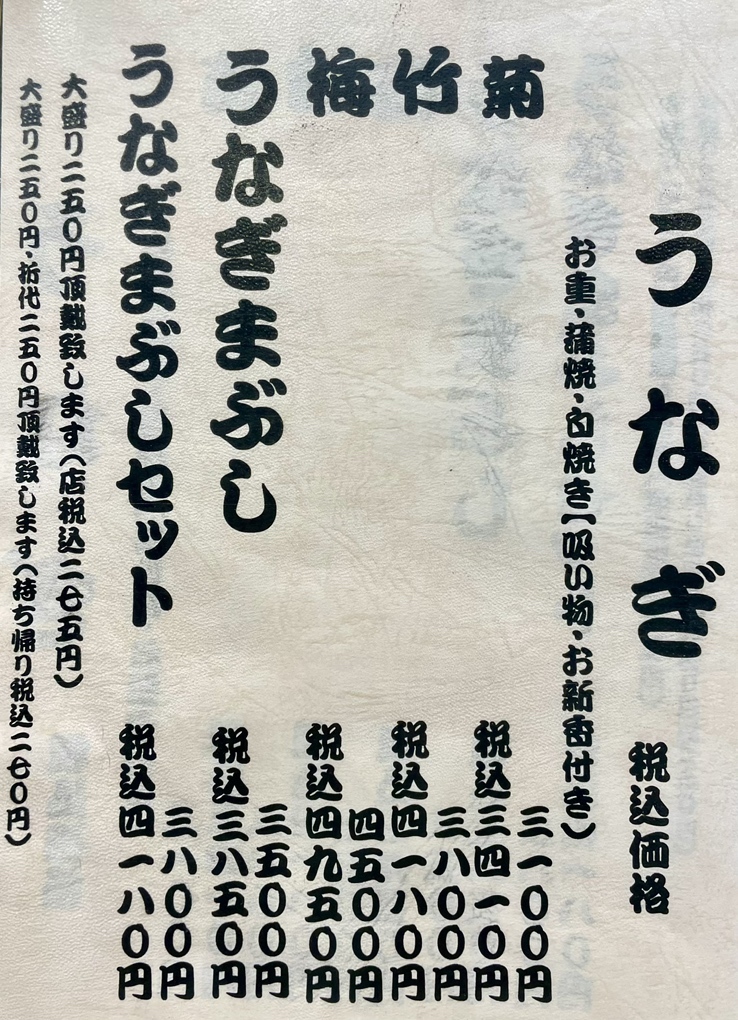 うなぎ 税込価格
お重・蒲焼・白焼き【吸い物・お新香付き】
菊 三一〇〇円
税込三四一〇円
竹 三八〇〇円
税込四一八〇円
梅 四五〇〇円
税込四九五〇円
うなぎまぶし 三五〇〇円
税込三八五〇円
うなぎまぶしセット 三八〇〇円
税込四一八〇円
大盛り二五〇円頂戴致します(店税込二七五円)
大盛り二五〇円・折代二五〇円頂戴致します(持ち帰り税込二七〇円)